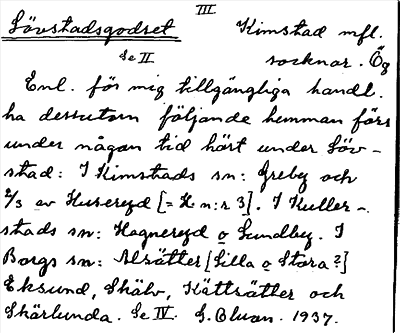 III
Lövstadsgodset Kimstad mfl.
Se II socknar. Ög
Enl. för mig tillgängliga handl.
ha dessutom följande hemman förr
under någon tid hört under Löv-
stad: I Kimstads sn: Greby och
2/3 av Husereyd [= H n:r 3]. I Kuller-
stads sn: Hagnereyd o Sundby. I
Borgs sn: Alsätter [Lilla o Stora?]
Eksund, Skälv, Kättsätter och
Skärlunda. Se IV. G. Bluan. 1937.